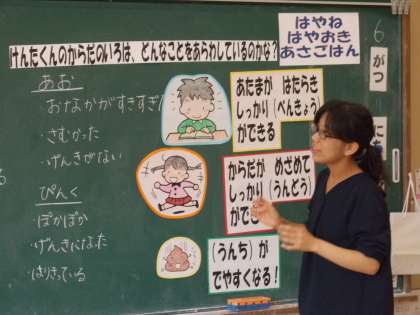 けんたくんのからだのいろは、どんなことをあらわしているのかな?
はやね
はやおき
あさごはん
6
がつ
に
あお
おなかがすきすぎ
・さむかった
・げんきがない
ぴんく
・ぽかぽか
・げんきになった
・はりきっている
あたまが はたらき
しっかり(べんきょう)
ができる
からだが めざめて
しっかり(うんどう)
がで
(うんち)が
でやすくなる!